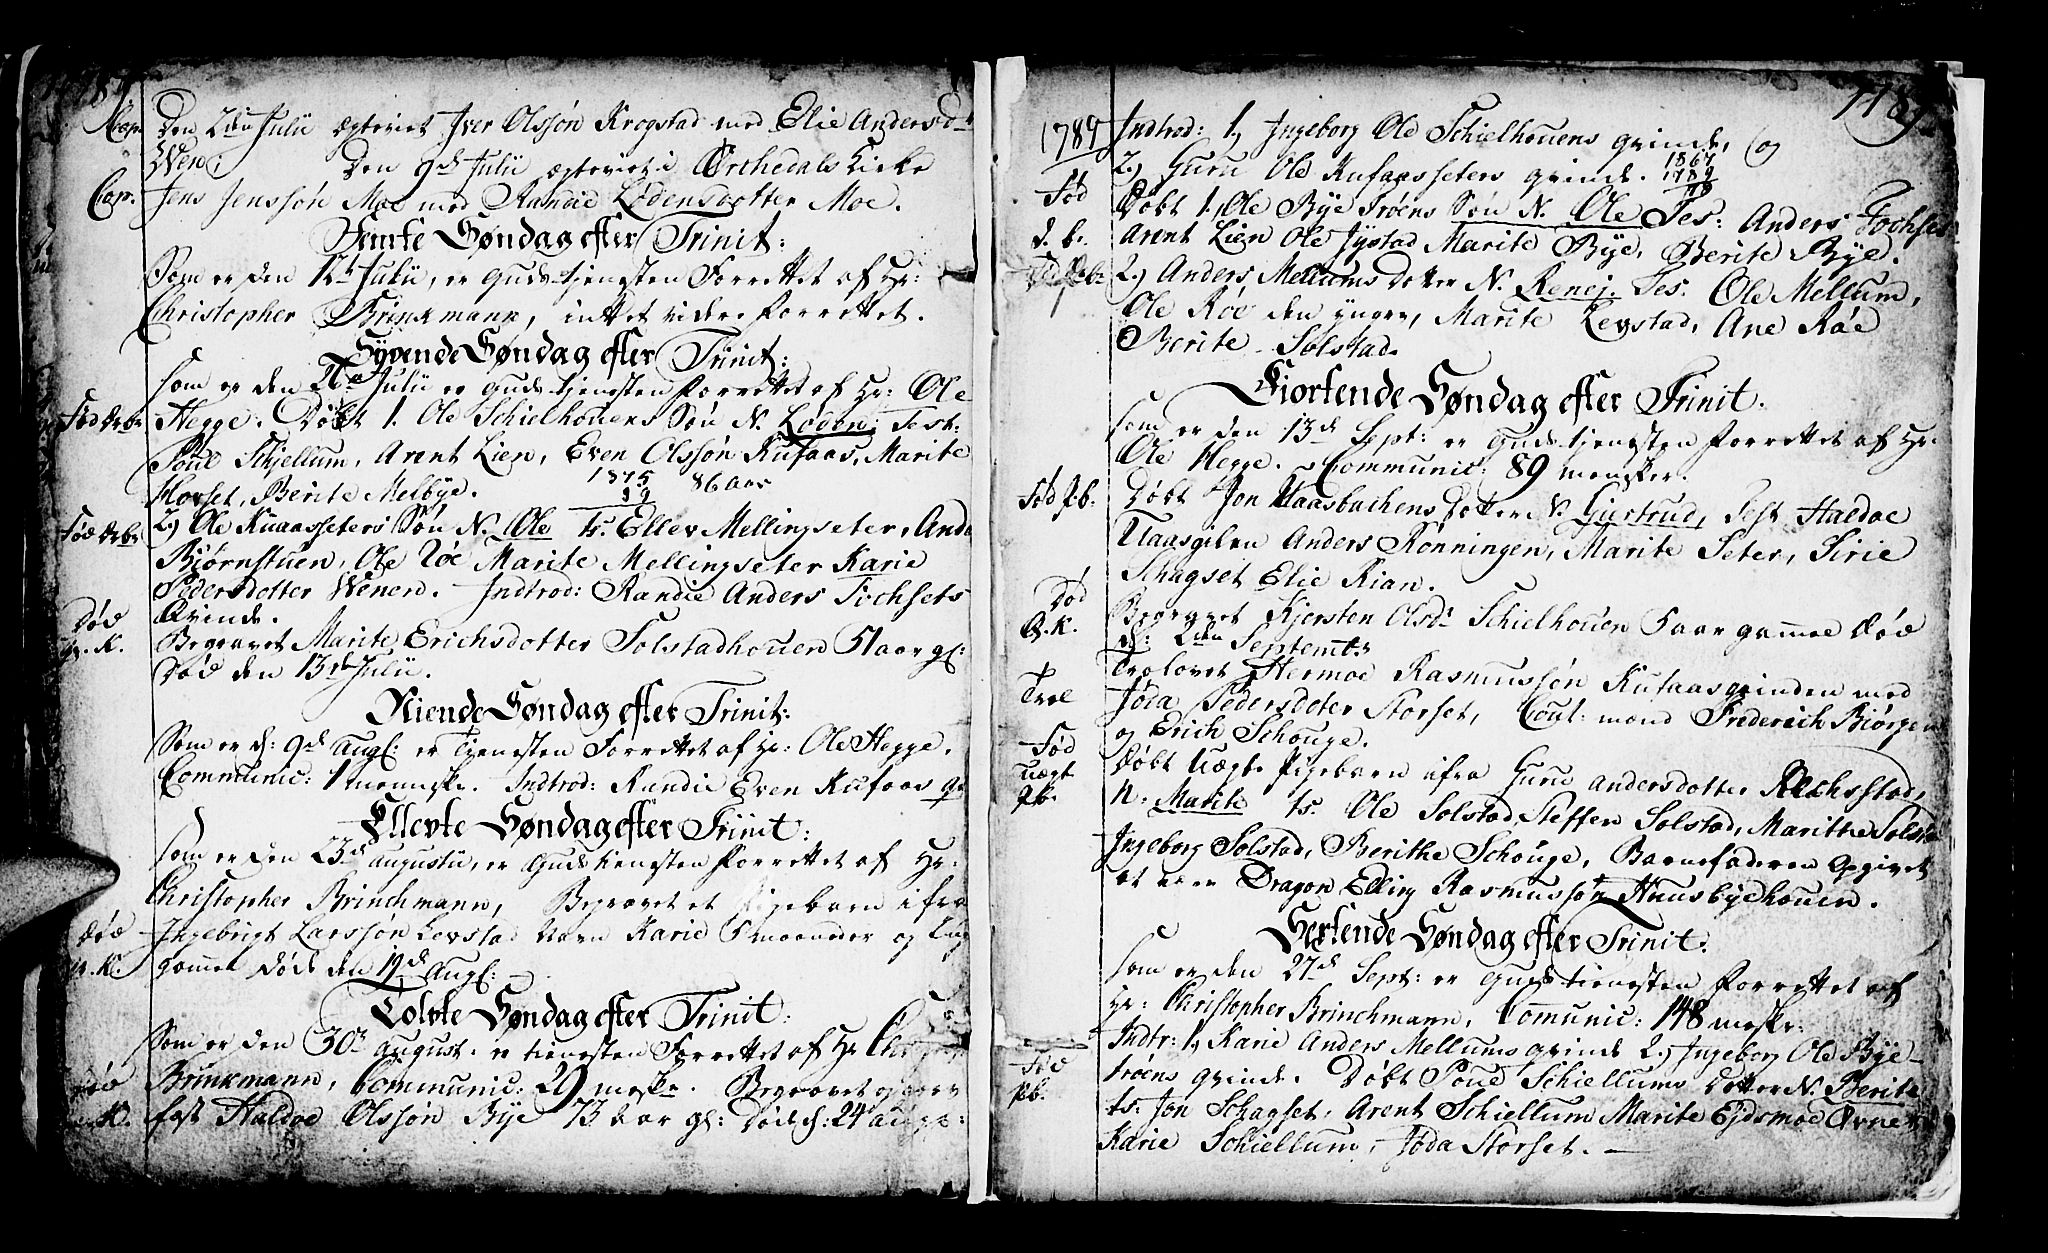 1789
Cop. Den 2den Julii ægteviet Iver Olssøn Krogstad med Elie Andersd:
Wen; Den 9d Julii ægteviet i Ørchedals Kirke
Cop. Jens Jenssøn Moe med Randie Lødensdotter Moe.
Femte Søndag efter Trinit:
Som er den 12t Julii, er Guds tjenesten Forrettet af Hr:
Christopher Brinkmann, intet videre forrettet.
Syvende Søndag efter Trinit:
som er den 26de Julii er Guds tjenesten Forrettet af Hr: Ole
Fød Drbn Hegge. Døbt 1. Ole Schielhouens Søn N. Løden; Test:
Poul Schjellum, Arent Lien, Even Olssøn Kufaas, Marite
Horset, Berite Melbye. 1875 86 aar
89
Fød Drbn 2.) Ole Kuaassæters Søn N. Ole Ts. Ellev Mellingseter, Ande
Bjørnstuen, Ole Røe Marite Mellingseter Karie
Pedersdotter Wenen. Indtrod: Randie Anders Fochsets
Qvinde.
Død
gr. K. Begravet Marite Erichsdotter Solstadhouen 51 aar gl:
Død den 13de Julii.
Niende Søndag efter Trinit:
Som er d: 9d Augl: er Tjenesten Forrettet af Hr: Ole Hegge.
Communic: 1 menneske. Indtrod: Randie Even Kufaas q:
Ellevte Søndag efter Trinit:
som er den 23d Augustii, er Guds tienesten Forrettet af Hr:
Christopher Brinchmann, Begravet et Pigebarn ifra
Død Ingebrigt Larssøn Levstad Navn Karie 5 maaneder og
K. gammel døde den 19d Augl:
Tolvte Søndag efter Trinit:
Som er den 30d August: er tienesten Forrettet af Hr
Død Brinkmann, Communic: 29 meske. Begravet
K. fast Haldoe Olssøn Bye 73 aar gl: Døde d: 24 Augl:
1789
1789 Indtrod: 1.) Ingeborg Ole Schielhouens qvinde, og
2.) Guru Ole Kufaasseters qvinde. 1867
1789
78
Fød
d. b. Døbt 1. Ole Bye Trøens Søn N. Ole Tes: Anders Fochset
Arent Lien Ole Jystad Marite Bye, Berite Bye.
2.) Anders Mellums Dotter N. Renej. Tes. Ole Mellum,
Ole Røe den yngre, Marite Levstad, Ane Røe
Berite Solstad.
Fiortende Søndag efter Trinit:
som er den 13d Sept: er Guds tjenesten Forrettet af Hr.
Ole Hegge. Communic: 89 mensker.
Fød P.b. Døbt Jon Uaasbachens Dotter N. Giertrud, Test Haldoe
Uaasgilen Anders Rønningen, Marite Seter, Sirie
Schagset Elie Rian.
Død
Q. K. Begravet Kjersten Olsd: Schielhouen 5 aar gammel død
d: 2den Septemb:
Trol Trolovet Hermoe Rasmussøn Kufaasgrinden med
Jøda Pedersdoter Storset, Cout: mend Frederich Biørgen
og Erich Schouge.
Fød
uægt
Pb. Døbt Uægte Pigebarn ifra Guru Andersdotter Rechstad,
N. Marite ts. Ole Solstad, Steffen Solstad, Marithe Solsta
Ingeborg Solstad, Berithe Schouge, Barnefaderen opgivet
at være Dragon Elling Rasmussøn Huusbyehouen.
Sextende Søndag efter Trinit:
som er den 27d Sept: er Guds tienesten Forrettet af
Hr: Christopher Brinchmann, Comunic: 148 meske:
Indtr: 1.) Karie Anders Mellums qvinde 2.) Ingeborg Ole Bye-
Fød
Pb. trøens qvinde. Døbt Poul Schiellums Dotter N. Berite
ts: Jon Schagset, Arent Schiellum Marite Ejdsmoe Øvne
Karie Schiellum, Jøda Storset.